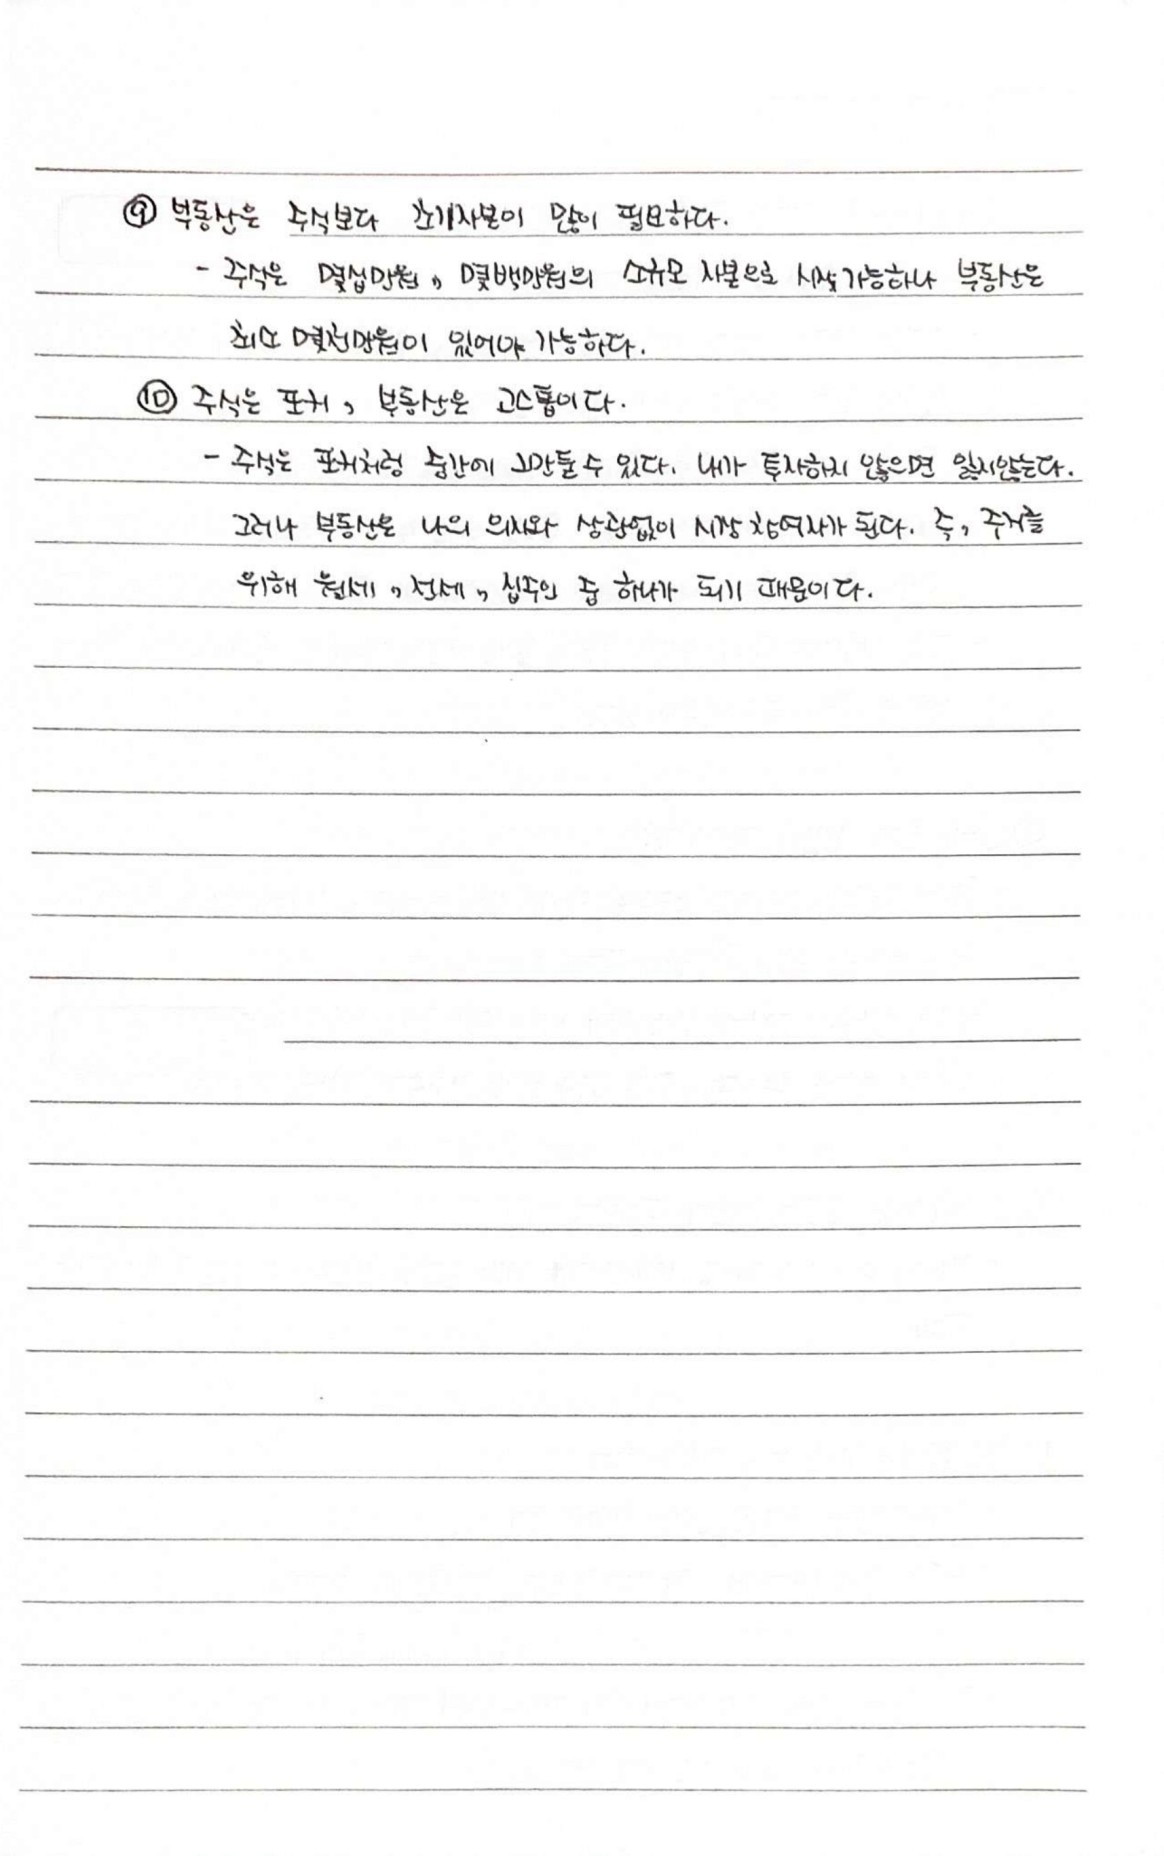 ⑨ 부동산은 주식보다 초기자본이 많이 필요하다.
- 주식은 몇십만원, 몇백만원의 소규모 자본으로 시작가능하나 부동산은
최소 몇천만원이 있어야 가능하다.
⑩ 주식은 포커, 부동산은 고스톱이다.
- 주식은 포커처럼 중간에 그만둘 수 있다. 내가 투자하지 않으면 잃지않는다.
그러나 부동산은 나의 의지와 상관없이 시장 참여자가 된다. 즉, 주거를
위해 월세, 전세, 집주인 중 하나가 되기 때문이다.